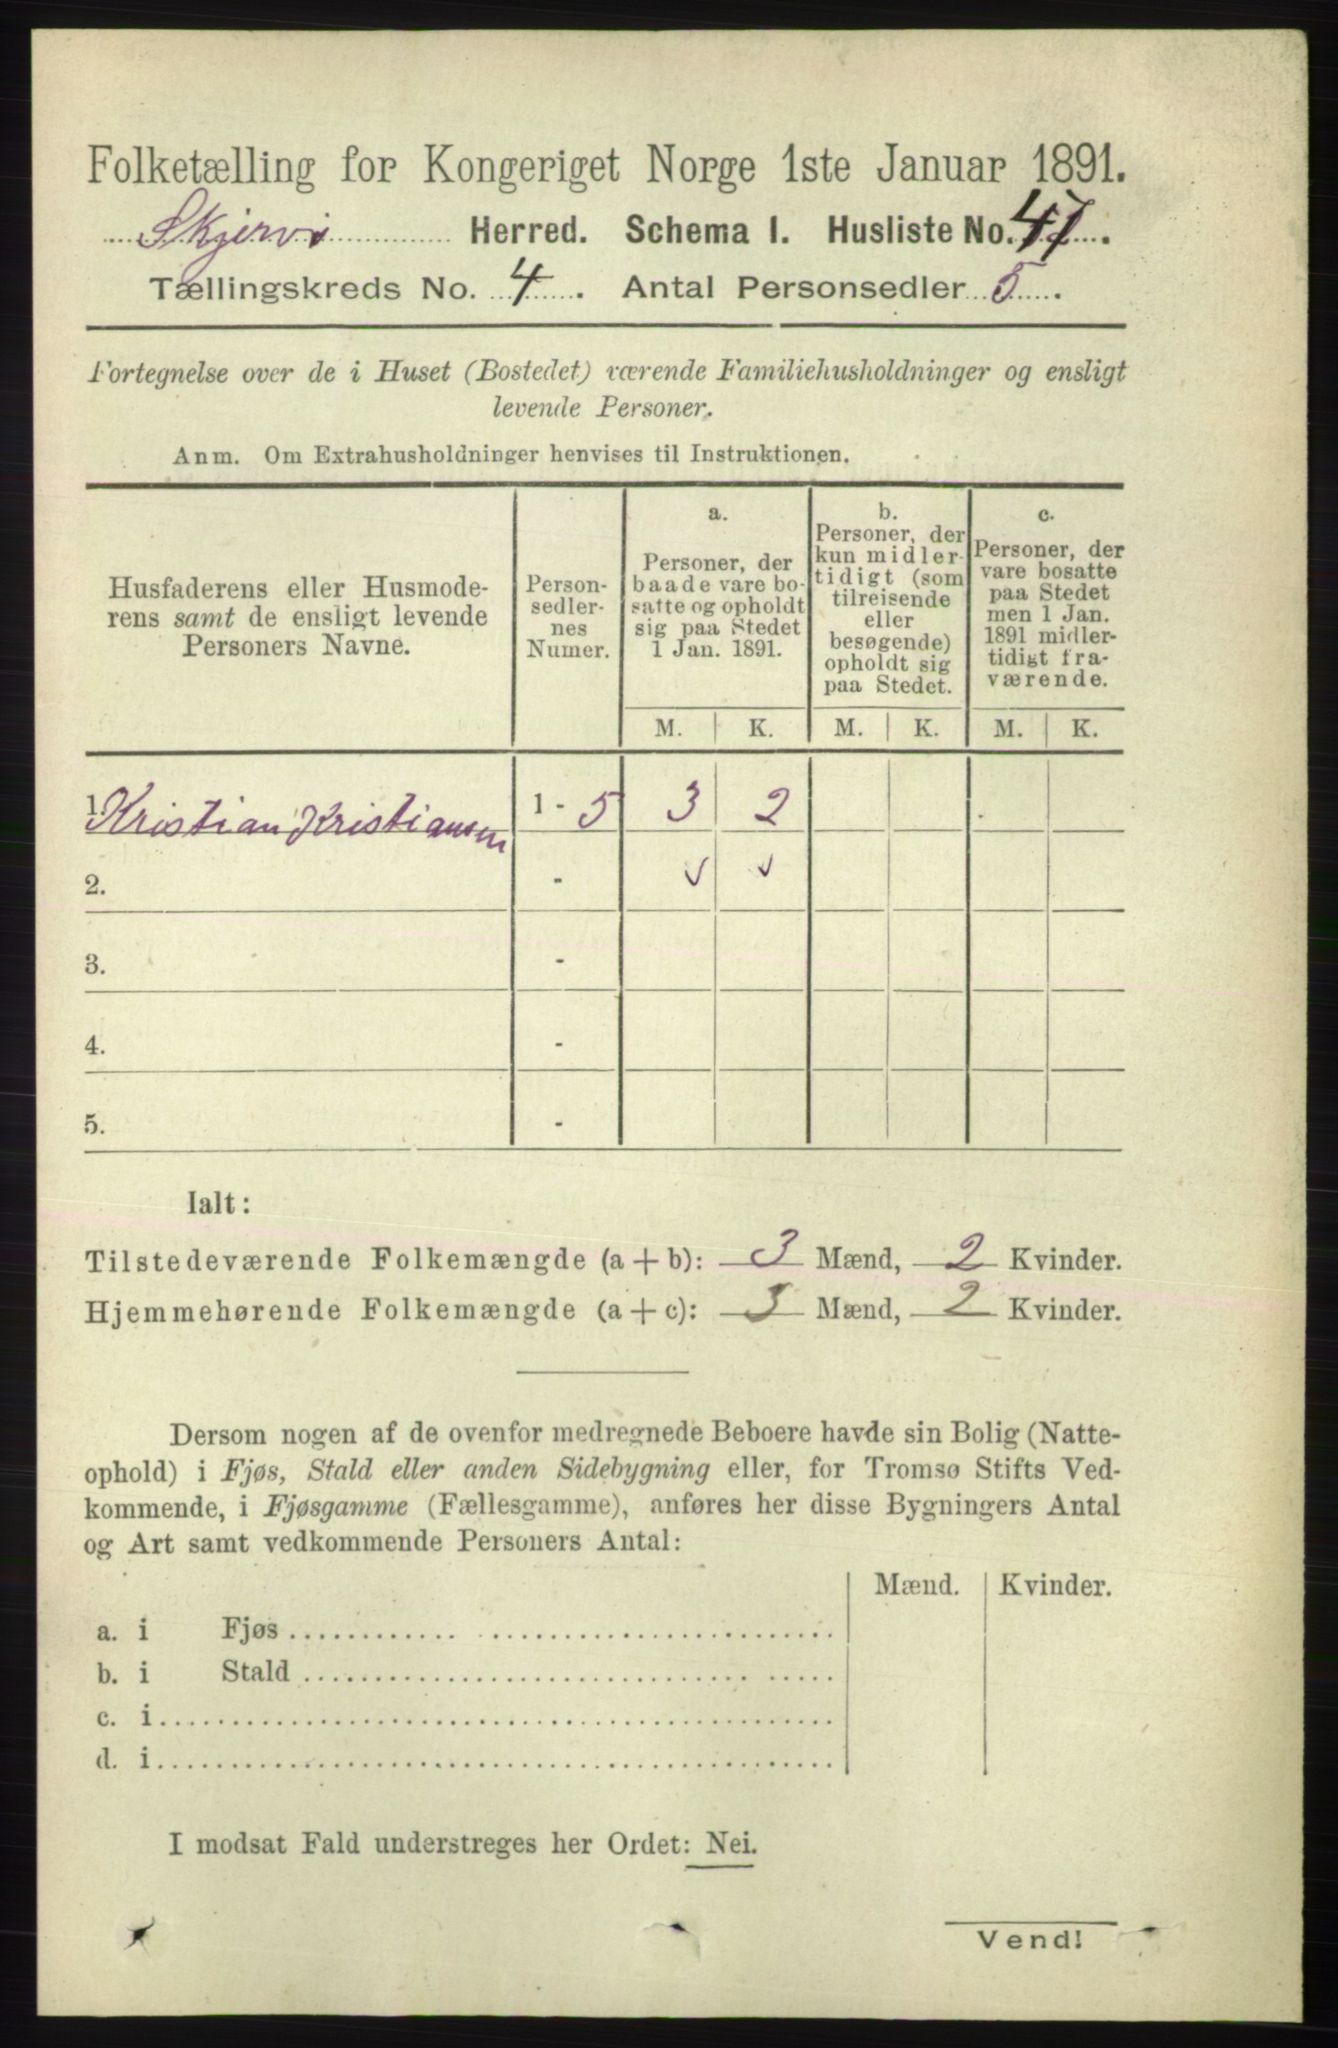 Folketælling for Kongeriget Norge 1ste Januar 1891.
Skjervø Herred. Schema I. Husliste No. 47.
Tællingskreds No. 4. Antal Personsedler 5.
Fortegnelse over de i Huset (Bostedet) værende Familiehusholdninger og ensligt
levende Personer.
Anm. Om Extrahusholdninger henvises til Instruktionen.
Husfaderens eller Husmode-
rens samt de ensligt levende
Personers Navne.
Person-
sedler-
nes
Numer.
a.
Personer, der
baade vare bo-
satte og opholdt
sig paa Stedet
1 Jan. 1891.
b.
Personer, der
kun midler-
tidigt (som
tilreisende
eller
besøgende)
opholdt sig
paa Stedet.
c.
Personer, der
vare bosatte
paa Stedet
men 1 Jan.
1891 midler-
tidigt fra-
værende.
M. K. M. K. M. K.
1. Kristian Kristiansen 1 - 5 3 2
2. -
3. -
4. -
5. -
Ialt:
Tilstedeværende Folkemængde (a + b): 3 Mænd, 2 Kvinder.
Hjemmehørende Folkemængde (a + c): 3 Mænd, 2 Kvinder.
Dersom nogen af de ovenfor medregnede Beboere havde sin Bolig (Natte-
ophold) i Fjøs, Stald eller anden Sidebygning eller, for Tromsø Stifts Ved-
kommende, i Fjøsgamme (Fællesgamme), anføres her disse Bygningers Antal
og Art samt vedkommende Personers Antal:
Mænd. Kvinder.
a. i Fjøs
b. i Stald
c. i
d. i
I modsat Fald understreges her Ordet: Nei.
Vend!